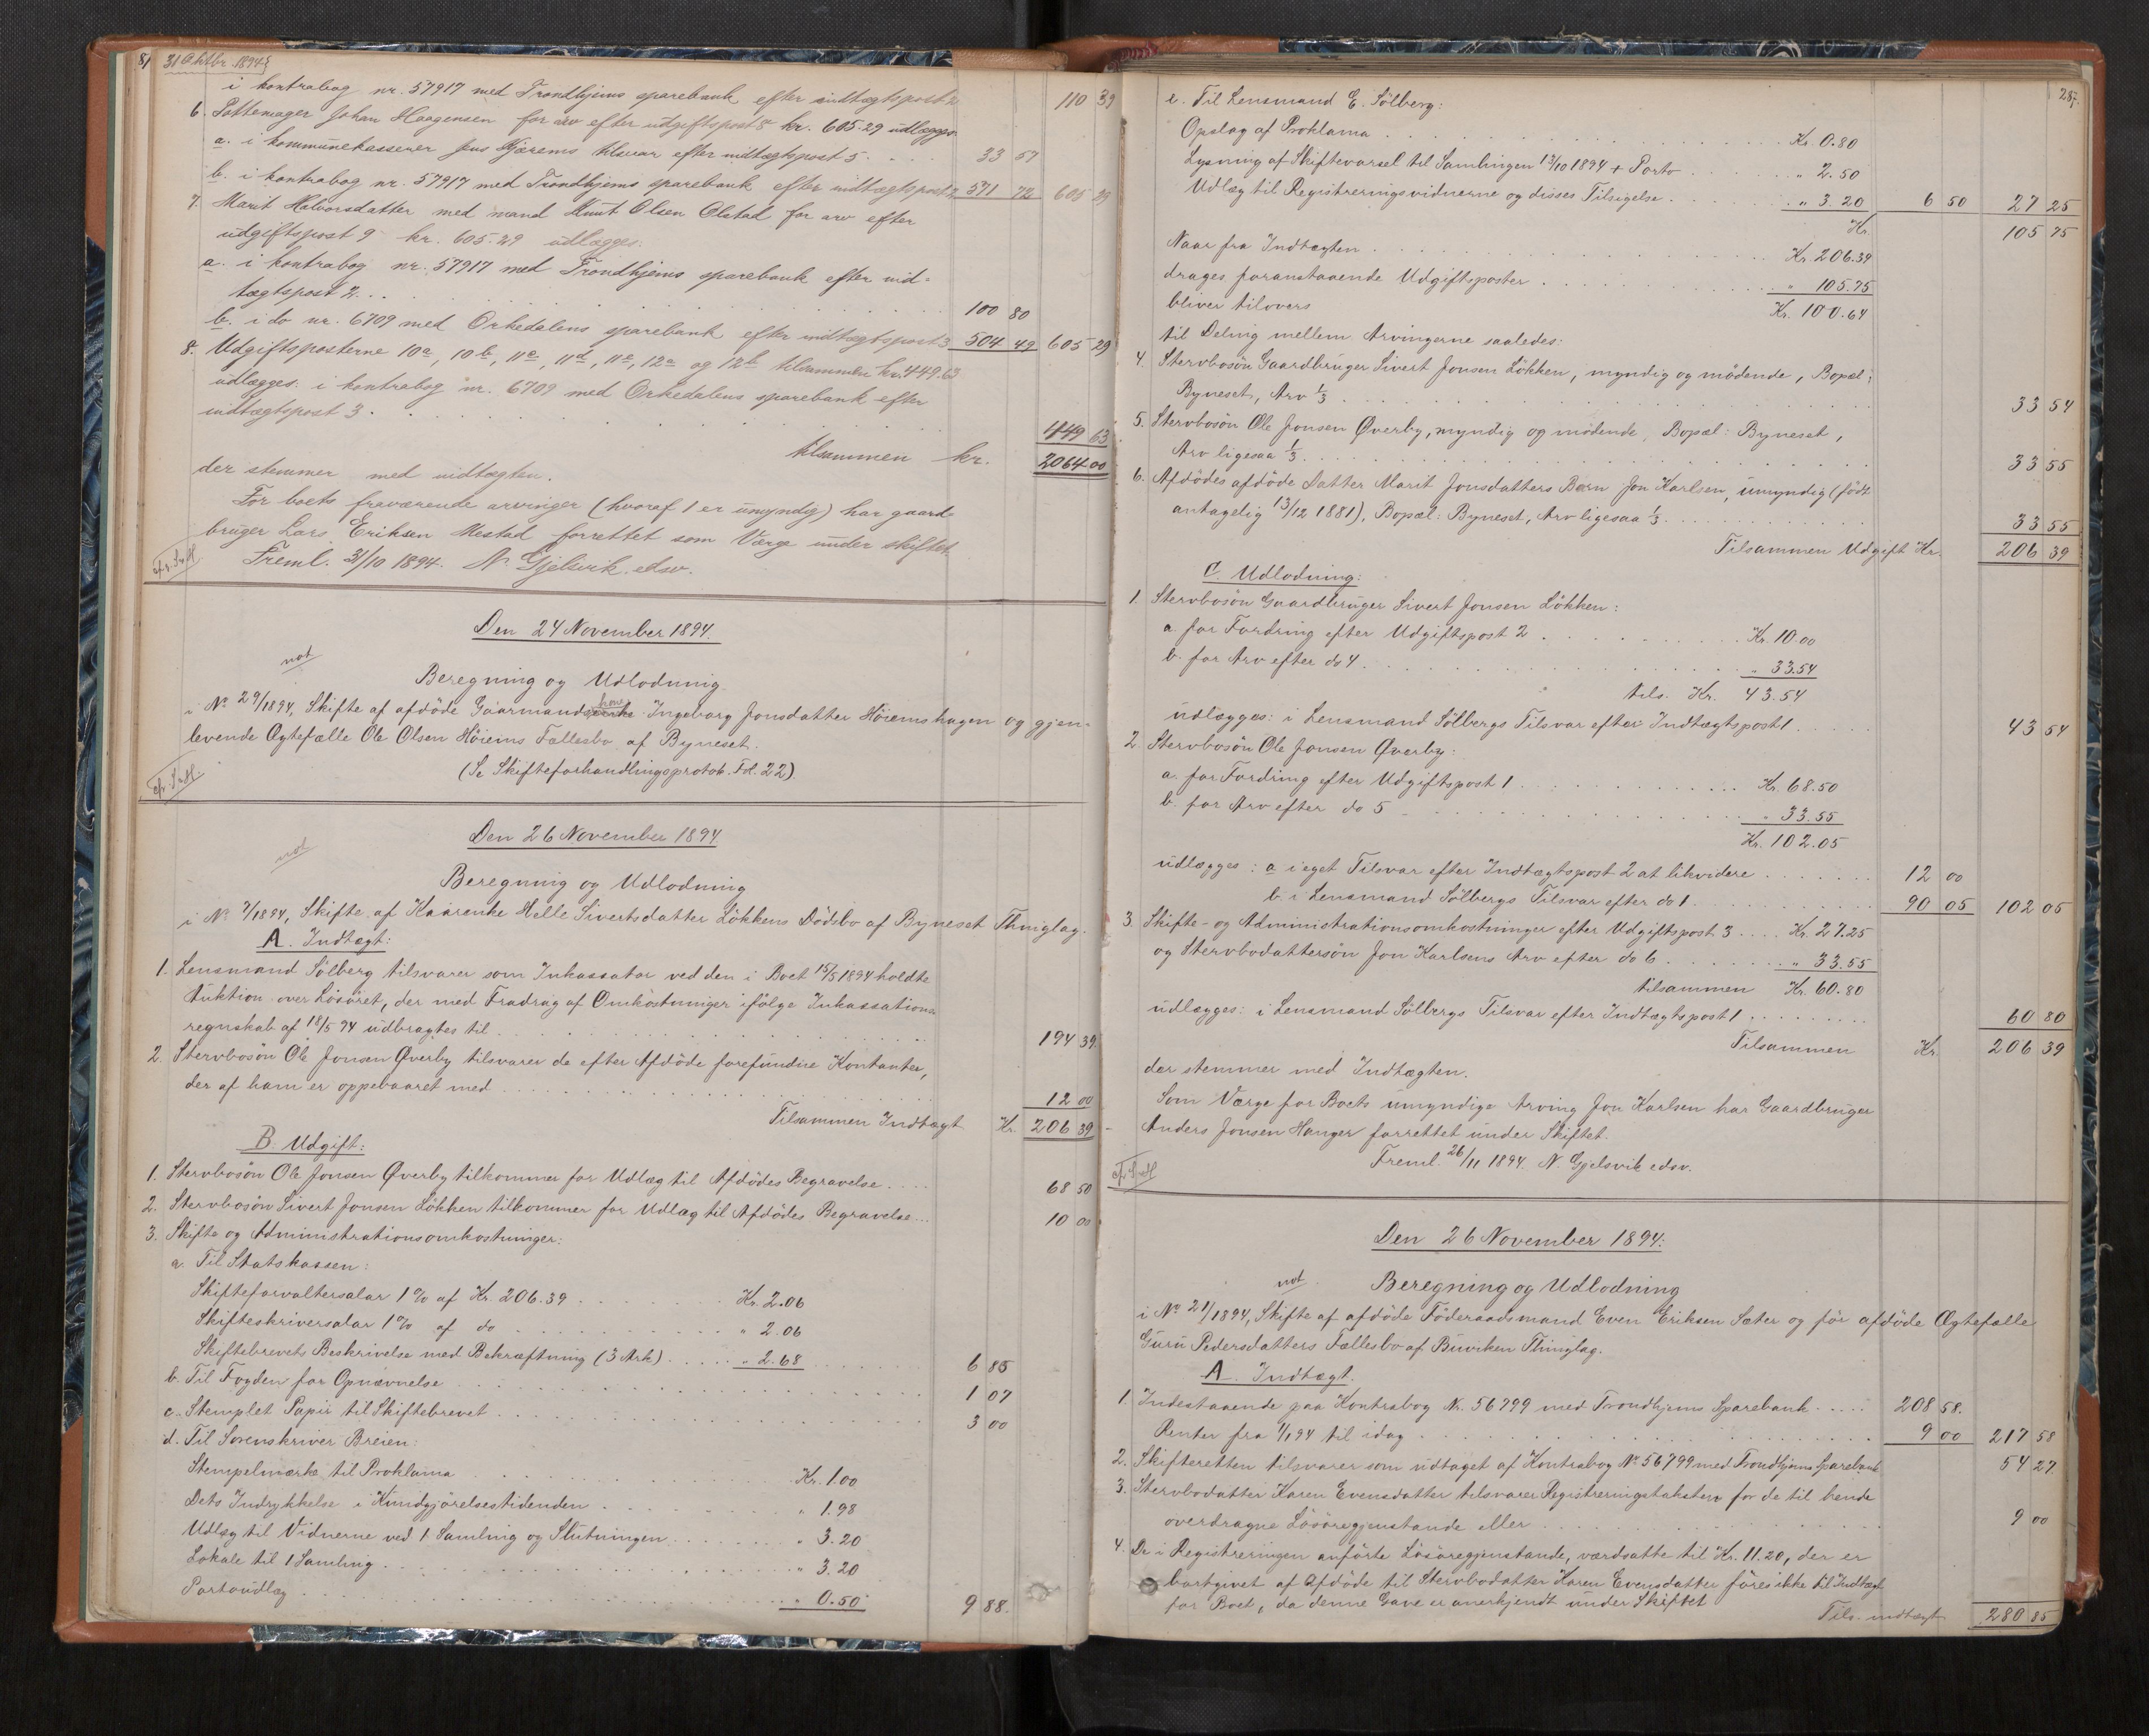 81 31 Oktbr. 1894
i kontrabog nr. 57917 med Trondhjems sparebank efter indtægtspost 2 110 39
6. Pottemager Johan Haagensen for arv efter udgiftspost 8 kr. 605.29 udlægges
a. i kommunekasserer Jens Kjærems tilsvar efter indtægtspost 5 . . . . 33 57
b. i kontrabog nr. 57917 med Trondhjems sparebank efter indtægtspost 2 571 72 605 29
7. Marit Halvorsdatter med mand Knut Olsen Olstad for arv efter
udgiftspost 9 kr. 605.29 udlægges:
a. i kontrabog nr. 57917 med Trondhjems sparebank efter ind-
tægtspost 2 . . 100 80
b. i do nr. 6709 med Orkedalens sparebank efter indtægtspost 3 504 49 605 29
8. Udgiftsposterne 10a, 10b, 11c, 11d, 11e, 12a og 12b tilsammen kr. 449.63
udlægges: i kontrabog nr. 6709 med Orkedalens sparebank efter
indtægtspost 3 . 449 63
tilsammen kr. 2064 00
der stemmer med indtægten.
For boets fraværende arvinger (hvoraf 1 er umyndig) har gaard-
bruger Lars Eriksen Mestad forrettet som Værge under skiftet.
Freml. 31/10 1894. N. Gjelsvik. edsv.
Den 24 November 1894.
not
Beregning og Udlodning
i No 29/1894, Skifte af afdöde Gaarmandskone Ingeborg Jonsdatter Höiemshagen og gjen-
levende Ægtefælle Ole Olsen Höiems Fællesbo af Byneset.
(Se Skifteforhandlingsprotok. Fol. 22).
Den 26 November 1894.
not
Beregning og Udlodning
i No 7/1894, Skifte af Kaarenke Helle Sivertsdatter Lökkens Dödsbo af Byneset Thinglag.
A. Indtægt:
1. Lensmand Sölberg tilsvarer som Inkassator ved den i Boet 15/5 1894 holdte
Auktion over Lösöret, der med Fradrag af Omkostninger ifölge Inkassations-
regnskab af 18/5 94 udbragtes til . . . 194 39.
2. Stervbosön Ole Jonsen Øverby tilsvarer de efter Afdöde forefundne Kontanter,
der af ham er oppebaaret med . . . 12 00
Tilsammen Indtægt Kr. 206 39
B. Udgift:
1. Stervbosön Ole Jonsen Øverby tilkommer for Udlæg til Afdödes Begravelse . . . . 68 50
2. Stervbosön Sivert Jonsen Lökken tilkommer for Udlæg til Afdödes Begravelse . . . 10 00
3. Skifte og Administrationsomkostninger:
a. Til Statskassen:
Skifteforvaltersalar 1 % af Kr. 206.39 . . . Kr. 2.06
Skifteskriversalar 1 % af do . . . " 2.06
Skiftebrevets Beskrivelse med Bekræftning (3 Ark) . . . " 2.68 6 85
b. Til Fogden for Opnævnelse . . . 1 07
c. Stemplet Papir til Skiftebrevet . . . 3 00
d. Til Sorenskriver Breien:
Stempelmærke til Proklama . . . Kr. 1.00
Dets Indrykkelse i Kundgjörelsestidenden . . . " 1.98
Udlæg til Vidnerne ved 1 Samling og Slutningen . . . " 3.20
Lokale til 1 Samling . . . " 3.20
Portoudlæg . . . " 0.50 9 88.
287.
e. Til Lensmand E. Sölberg:
Opslag af Proklama . . . Kr. 0.80
Lysning af Skiftevarsel til Samlingen 13/10 1894 + Porto . . . " 2.50
Udlæg til Registreringsvidnerne og disses Tilsigelse . . . " 3.20 6 50 27 25
Kr. 105 75
Naar fra Indtægten . . . Kr. 206.39
drages foranstaaende Udgiftsposter . . . " 105.75
bliver tilovers Kr. 100.64
til Deling mellem Arvingerne saaledes:
4. Stervbosön Gaardbruger Sivert Jonsen Lökken, myndig og mödende, Bopæl:
Byneset, Arv 1/3 . . . 33 54
5. Stervbosön Ole Jonsen Øverby, myndig og mödende, Bopæl: Byneset,
Arv ligesaa 1/3 . . . 33 55
6. Afdödes afdöde Datter Marit Jonsdatters Barn Jon Karlsen, umyndig (födt
antagelig 13/12 1881), Bopæl: Byneset, Arv ligesaa 1/3 . . . 33 55
Tilsammen Udgift Kr. 206 39
C. Udlodning:
1. Stervbosön Gaardbruger Sivert Jonsen Lökken:
a. for Fordring efter Udgiftspost 2 . . . Kr. 10.00
b. for Arv efter do 4 . . . " 33.54
tils. Kr. 43.54
udlægges: i Lensmand Sölbergs Tilsvar efter Indtægtspost 1 . . . 43 54
2. Stervbosön Ole Jonsen Øverby:
a. for Fordring efter Udgiftspost 1 . . . Kr. 68.50
b. for Arv efter do 5 . . . " 33.55
Kr. 102.05
udlægges: a i eget Tilsvar efter Indtægtspost 2 at likvidere . . . 12 00
b. i Lensmand Sölbergs Tilsvar efter do 1 . . . 90 05 102 05
3. Skifte- og Administrationsomkostninger efter Udgiftspost 3 . . . . Kr. 27.25
og Stervbodattersön Jon Karlsens Arv efter do 6 . . . " 33.55
tilsammen Kr. 60.80
udlægges: i Lensmand Sölbergs Tilsvar efter Indtægtspost 1 . . . 60 80
Tilsammen Kr. 206 39
der stemmer med Indtægten.
Som Værge for Boets umyndige Arving Jon Karlsen har Gaardbruger
Anders Jonsen Hanger forrettet under Skiftet.
Freml. 26/11 1894. N. Gjelsvik edsv.
Den 26 November 1894:
not.
Beregning og Udlodning
i No 21/1894, Skifte af afdöde Föderaadsmand Even Eriksen Sæter og för afdöde Ægtefælle
Guru Pedersdatters Fællesbo af Buviken Thinglag.
A. Indtægt.
1. Indestaaende paa Kontrabog Nr. 56799 med Trondhjems Sparebank . . . . 208 58.
Renter fra 1/1 94 til idag . . . 9 00 217 58
2. Skifteretten tilsvarer som udtaget af Kontrabog No 56799 med Trondhjems Sparebank 54 27
3. Stervbodatter Karen Evensdatter tilsvarer Registreringstaksten for de til hende
overdragne Lösöregjenstande eller . . . 9 00
4. De i Registreringen anförte Lösöregjenstande, værdsatte til Kr. 11.20, der er
bortgivet af Afdöde til Stervbodatter Karen Evensdatter föres ikke til Indtægt
for Boet, da denne Gave er anerkjendt under Skiftet
Tils. indtægt 280 85